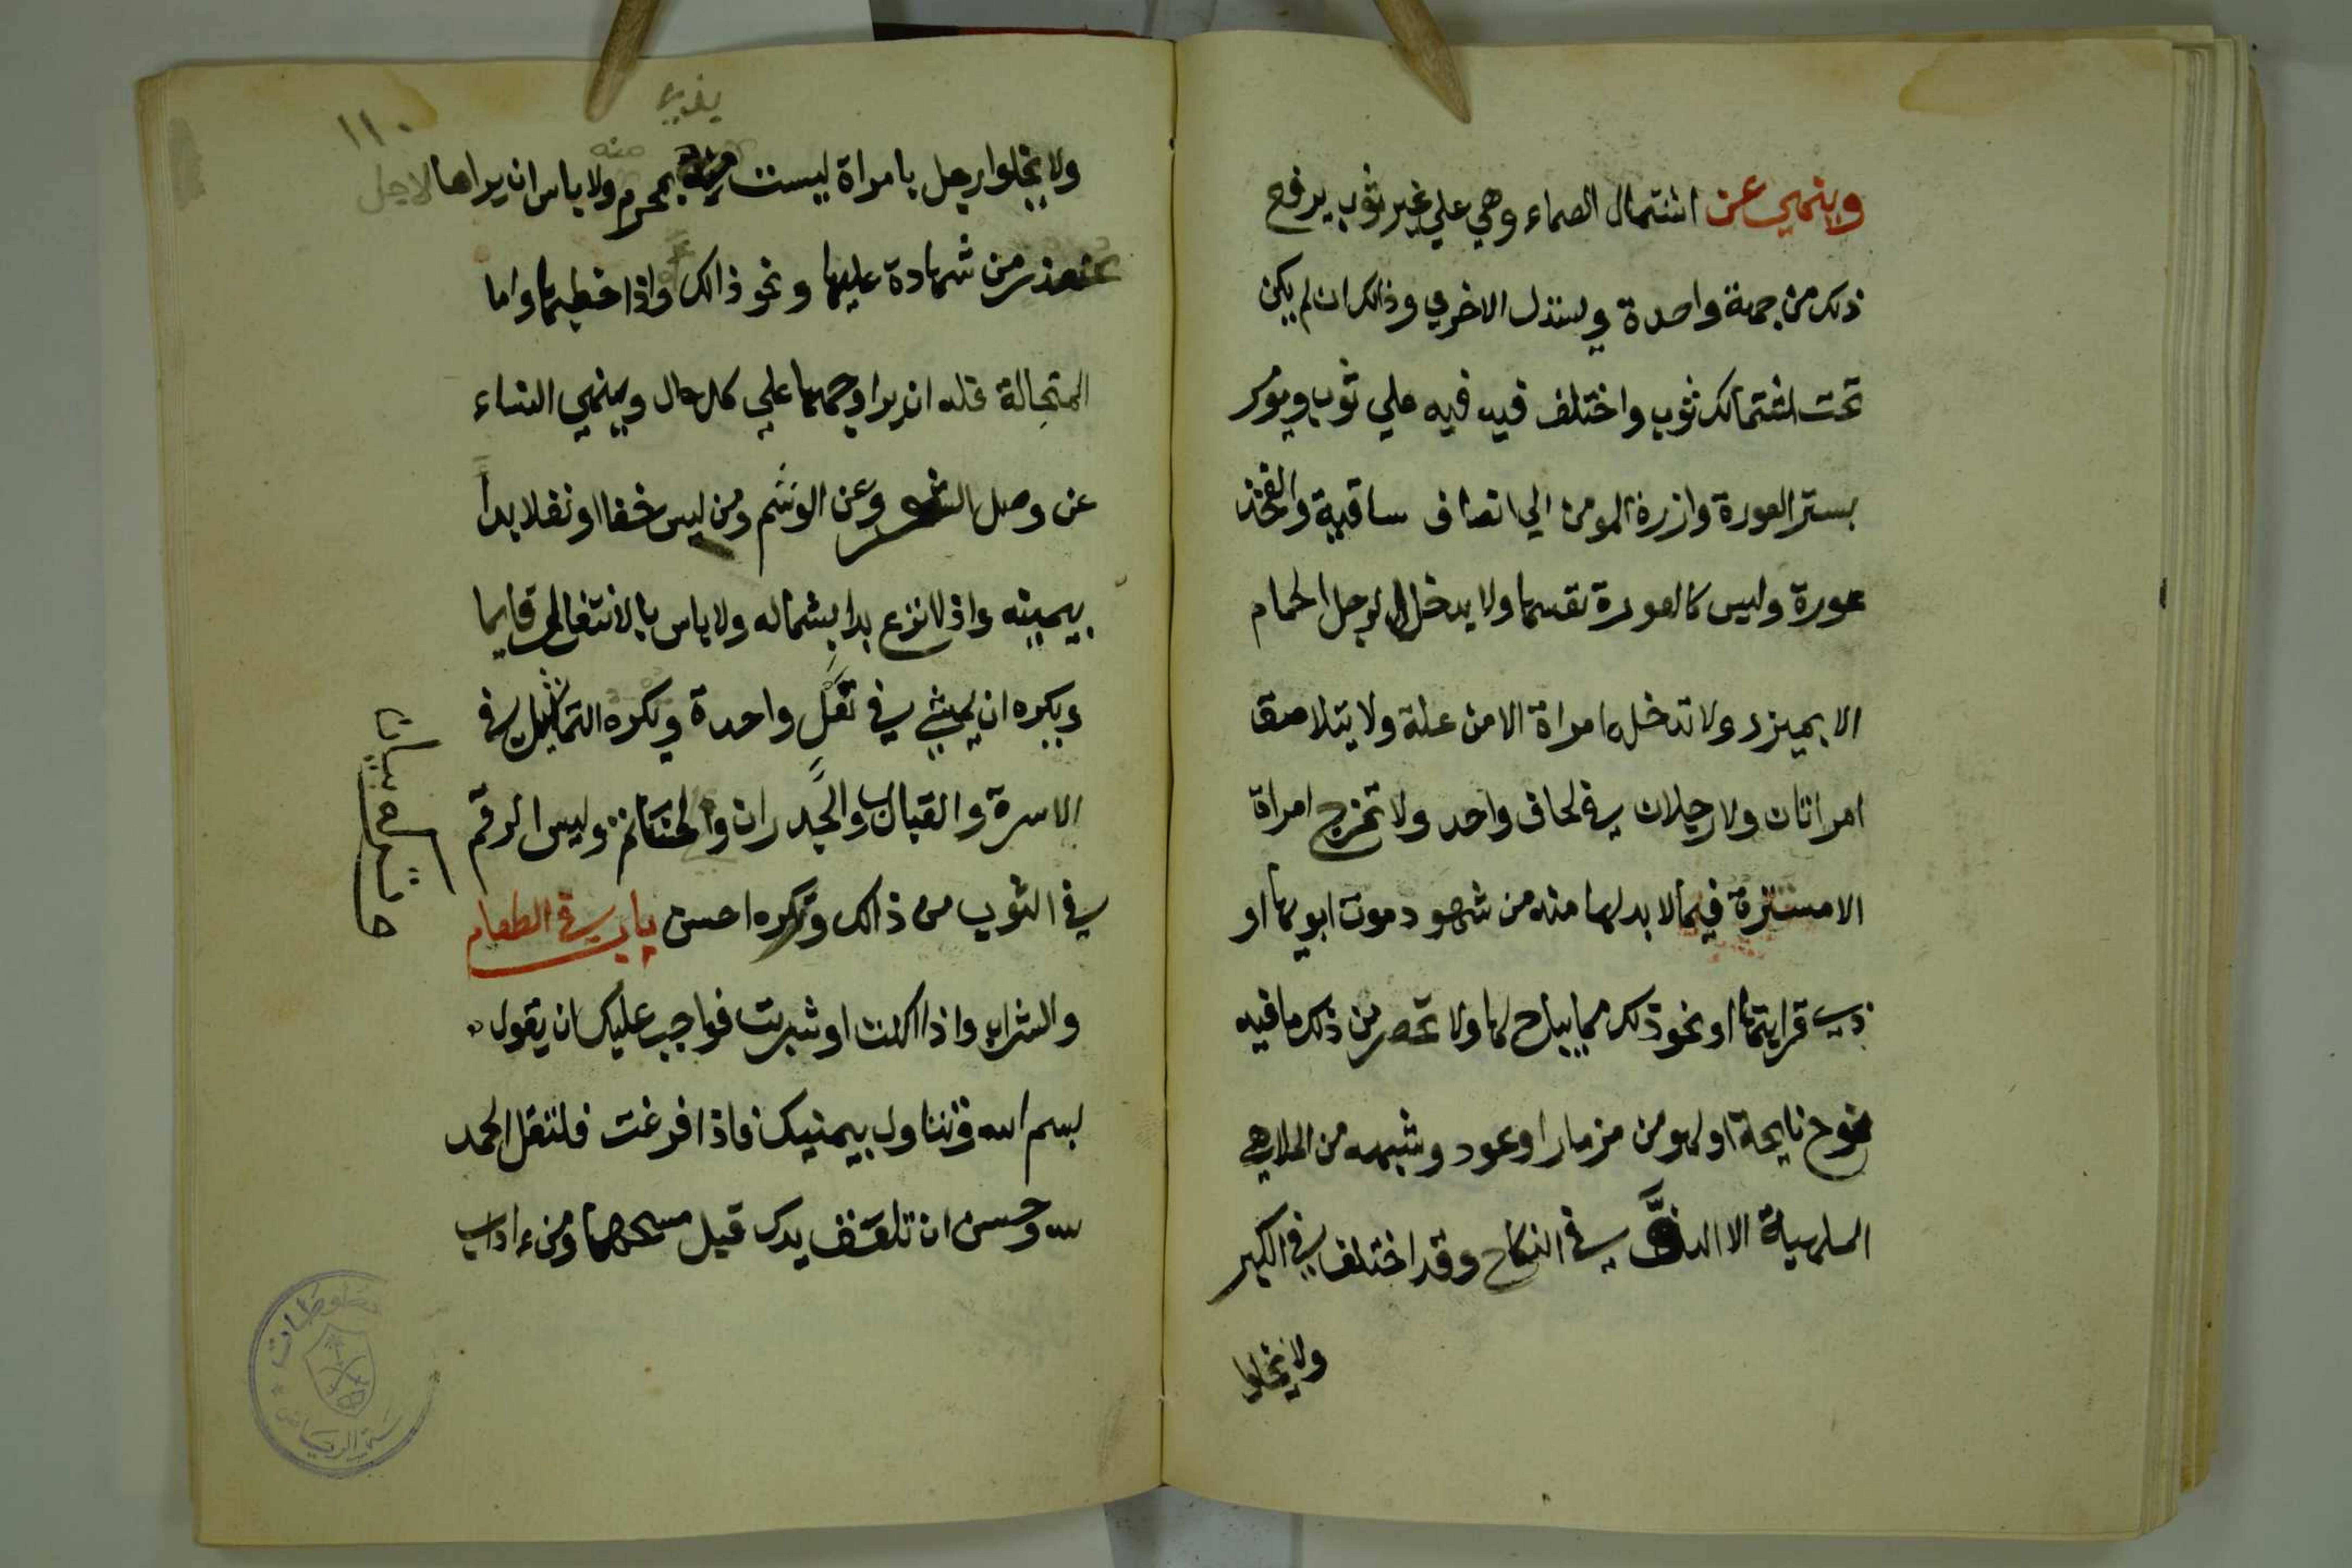 وينهي عن اشتمال الصماء وهي علي غير ثوب يرفع
ذلك من جهة واحدة ويسدل الاخري وذالك ان لم يكن
تحت اشتمالك ثوب واختلف فيه فيه علي ثوب ويومر
بستر العورة وازرة المومن الي انصاف ساقيه والفخذ
عورة وليس كالعورة نفسها ولا يدخل الرجل الحمام
الا بميزر ولا تدخله امراة الا من علة ولا يتلاصق
امراتان ولا رجلان في لحاف واحد ولا تخرج امراة
الا مستترة فيما لا بد لها منه من شهود موت ابويها او
ذي قرابتها او نحو ذلك مما يباح لها ولا تحضر من ذلك ما فيه
نوح نايحة او لهو من مزمار او عود وشبهه من الملاهي
الملهية الا الدف في النكاح وقد اختلف في الكير
ولا يخلوا
١١٠
ولا يخلوا رجل بامراة ليست منه بمحرم ولا باس ان يراها لاجل
عذر من شهادة عليها ونحو ذالك واذا خطبها واما
المتجالة فله ان يرا وجهها علي كل حال وينهي النساء
عن وصل الشعر وعن الوشم ومن لبس خفا او نعلا بدا
بيمينه واذا نزع بدا بشماله ولا باس بالانتعال قايما
ويكره ان يمشي في نعل واحدة ويكره التماثيل في
الاسرة والقباب والجدران والخاتم وليس الرقم
في الثوب من ذالك وتركه احسن باب في الطعام
والشراب واذا اكلت او شربت فواجب عليك ان تقول
بسم الله وتتناول بيمينك فاذا فرغت فلتقل الحمد
لله وحسن ان تلعق يدك قبل مسحها ومن ءاداب